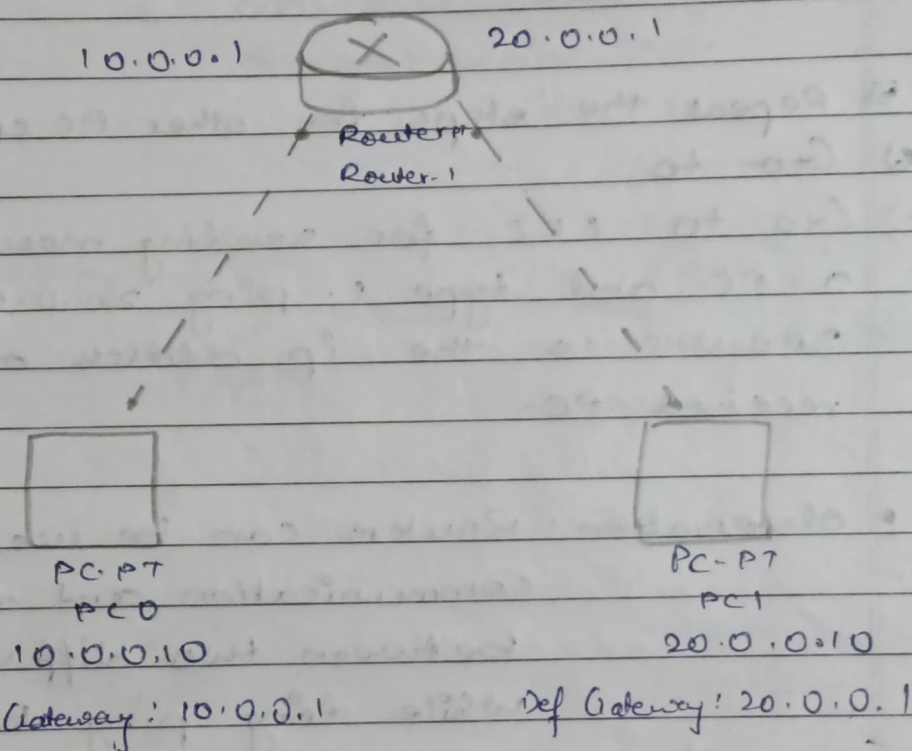 10.0.0.1
20.0.0.1
Router PT
Router-1
PC-PT
PC0
10.0.0.10
Gateway: 10.0.0.1
PC-PT
PC1
20.0.0.10
Def Gateway: 20.0.0.1